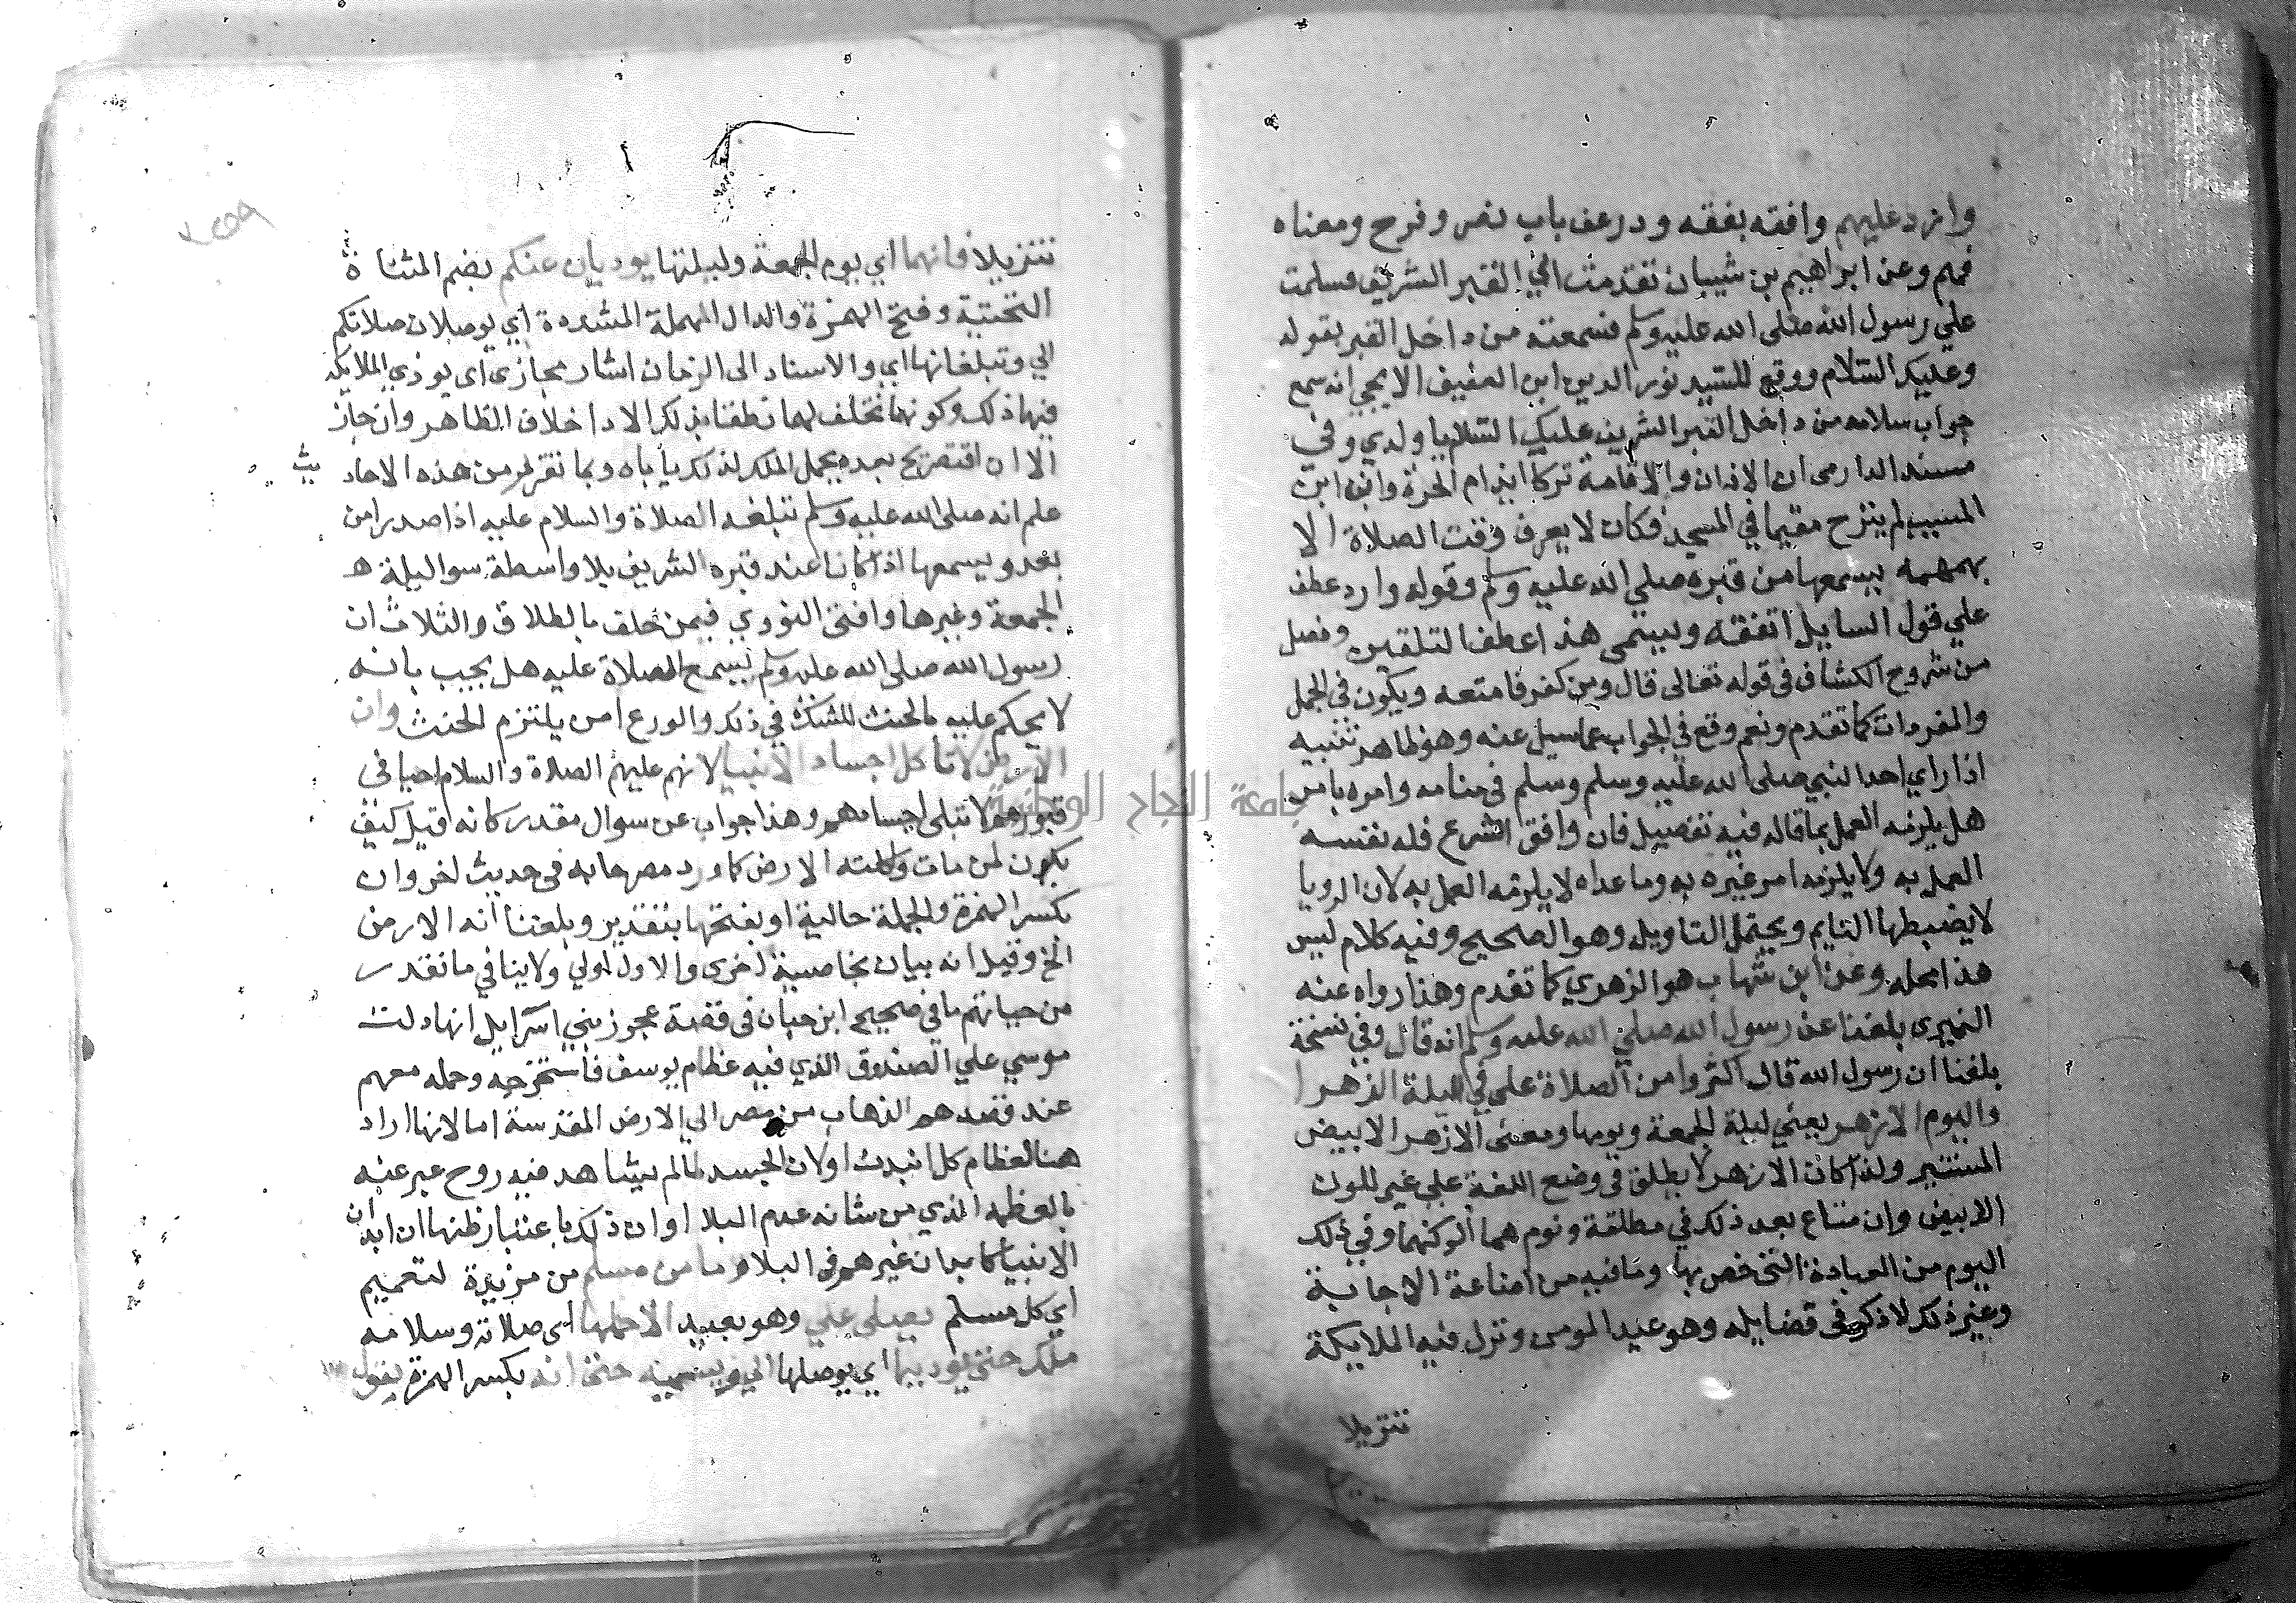 وازد عليهم وافقه بفقه ودرعف باب نصر وفرح ومعناه
فهم وعن ابراهيم بن شيبان تقدمت الي القبر الشريف فسلمت
علي رسول الله صلى الله عليه وسلم فسمعته من داخل القبر يقول
وعليك السلام ووقع للسيد نور الدين ابن العفيف الايجي انه سمع
جواب سلامه من داخل القبر الشريف عليك السلام يا ولدي وفي
مسند الدارمى ان الاذان والاقامة تركا ايام الحرة وان ابن
المسيب لم يبرح مقيما في المسجد فكان لا يعرف وقت الصلاة الا
بهمهمه يسمعها من قبره صلى الله عليه وسلم وقوله وارد عطف
علي قول السايل اتفقه ويسمى هذا عطف التلقين وفصل
من شروح الكشاف فى قوله تعالى قال ومن كفر فامتعه ويكون فى الجمل
والمفردات كما تقدم ونعم وقع في الجواب عما سيل عنه وهو ظاهر تنبيه
اذا راي احد النبي صلى الله عليه وسلم وسلم فى منامه وامره بامر
هل يلزمه العمل بما قاله فيه تفصيل فان وافق الشرع فله نفسه
العمل به ولا يلزمه امر غيره به وما عداه لا يلزمه العمل به لان الرويا
لا يضبطها النايم ويحتمل التاويل وهو الصحيح وفيه كلام ليس
هذا محله وعن ابن شهاب هو الزهري كما تقدم وهذا رواه عنه
النميرى بلغنا عن رسول الله صلى الله عليه وسلم انه قال وفي نسخة
بلغنا ان رسول الله قال اكثروا من الصلاة علي في الليلة الزهرا
واليوم الازهر يعني ليلة الجمعة ويومها ومعنى الازهر الابيض
المستنير ولذا كان الازهر لا يطلق فى وضع اللغة علي غير اللون
الابيض وان شاع بعد ذلك في مطلقة ونوم هما الوكنهما وفي ذلك
اليوم من العبادة التى خص بها وما فيه من اضاعة الاجابة
وغير ذلك لا ذكر فى فضايله وهو عيد المومن وتزل فيه الملايكة
تنزيلا
تنزيلا فانهما اي يوم الجمعة وليلتها يوديان عنكم بضم المثناة
التحتية وفتح الهمزة والدال المهملة المشددة اي يوصلان صلاتكم
الي وتبلغانها اي والاسناد الى الزمان اشار مجازى اى يوذي الملايكة
فيها ذلك وكونهما تخلف لهما نطقا بذلك الا دا خلاف الظاهر وان جاز
الا ان التصريح بعده بحمل الملك لذلك ياباه وبما تقرر من هذه الاحاديث
علم انه صلى الله عليه وسلم تبلغه الصلاة والسلام عليه اذا صدرا من
بعد ويسمعها اذا كانا عند قبره الشريف بلا واسطة سوا ليلة
الجمعة وغيرها وافتى النووي فيمن حلف بالطلاق والثلاث ان
رسول الله صلى الله عليه وسلم يسمع الصلاة عليه هل يجيب بانه
لا يحكم عليه بالحنث للشك في ذلك والورع ان يلتزم الحنث وان
الارض لا تاكل اجساد الانبيا لانهم عليهم الصلاة والسلام احيا فى
قبورهم لا تبلى اجسامهم وهذا جواب عن سوال مقدر كانه قيل كيف
يكون لمن مات واكلته الارض كما ورد مصرحا به فى حديث اخر وان
بكسر الهمزة والجملة حالية او بفتحها بتقدير وبلغنا انه الارض
الخ وقيل انه بيان بخاصية اخرى والاول اولي ولا ينافي ما تقدر
من حياتهم ما في صحيح ابن حبان فى قصة عجوز بني اسرايل انها دلت
موسي علي الصندوق الذي فيه عظام يوسف فاستخرجه وحمله معهم
عند قصدهم الذهاب من مصر الي الارض المقدسة اما لانها اراد
هنا العظام كل البدن او لان الجسد لما لم يشاهد فيه روح عبر عنه
بالعظم الذي من شانه عدم البلا او ان ذلك باعتبار ظنها ان ابدان
الانبيا كابدان غيرهم فى البلا وما من مسلم من مزيدة لتعميم
اي كل مسلم يصلى علي وهو بعيد الا حملها اى صلاته وسلامه
ملك حتى يوديها اي يوصلها الي ويسميه حتى انه بكسر الهمزة يقول
جامعة النجاح الوطنية